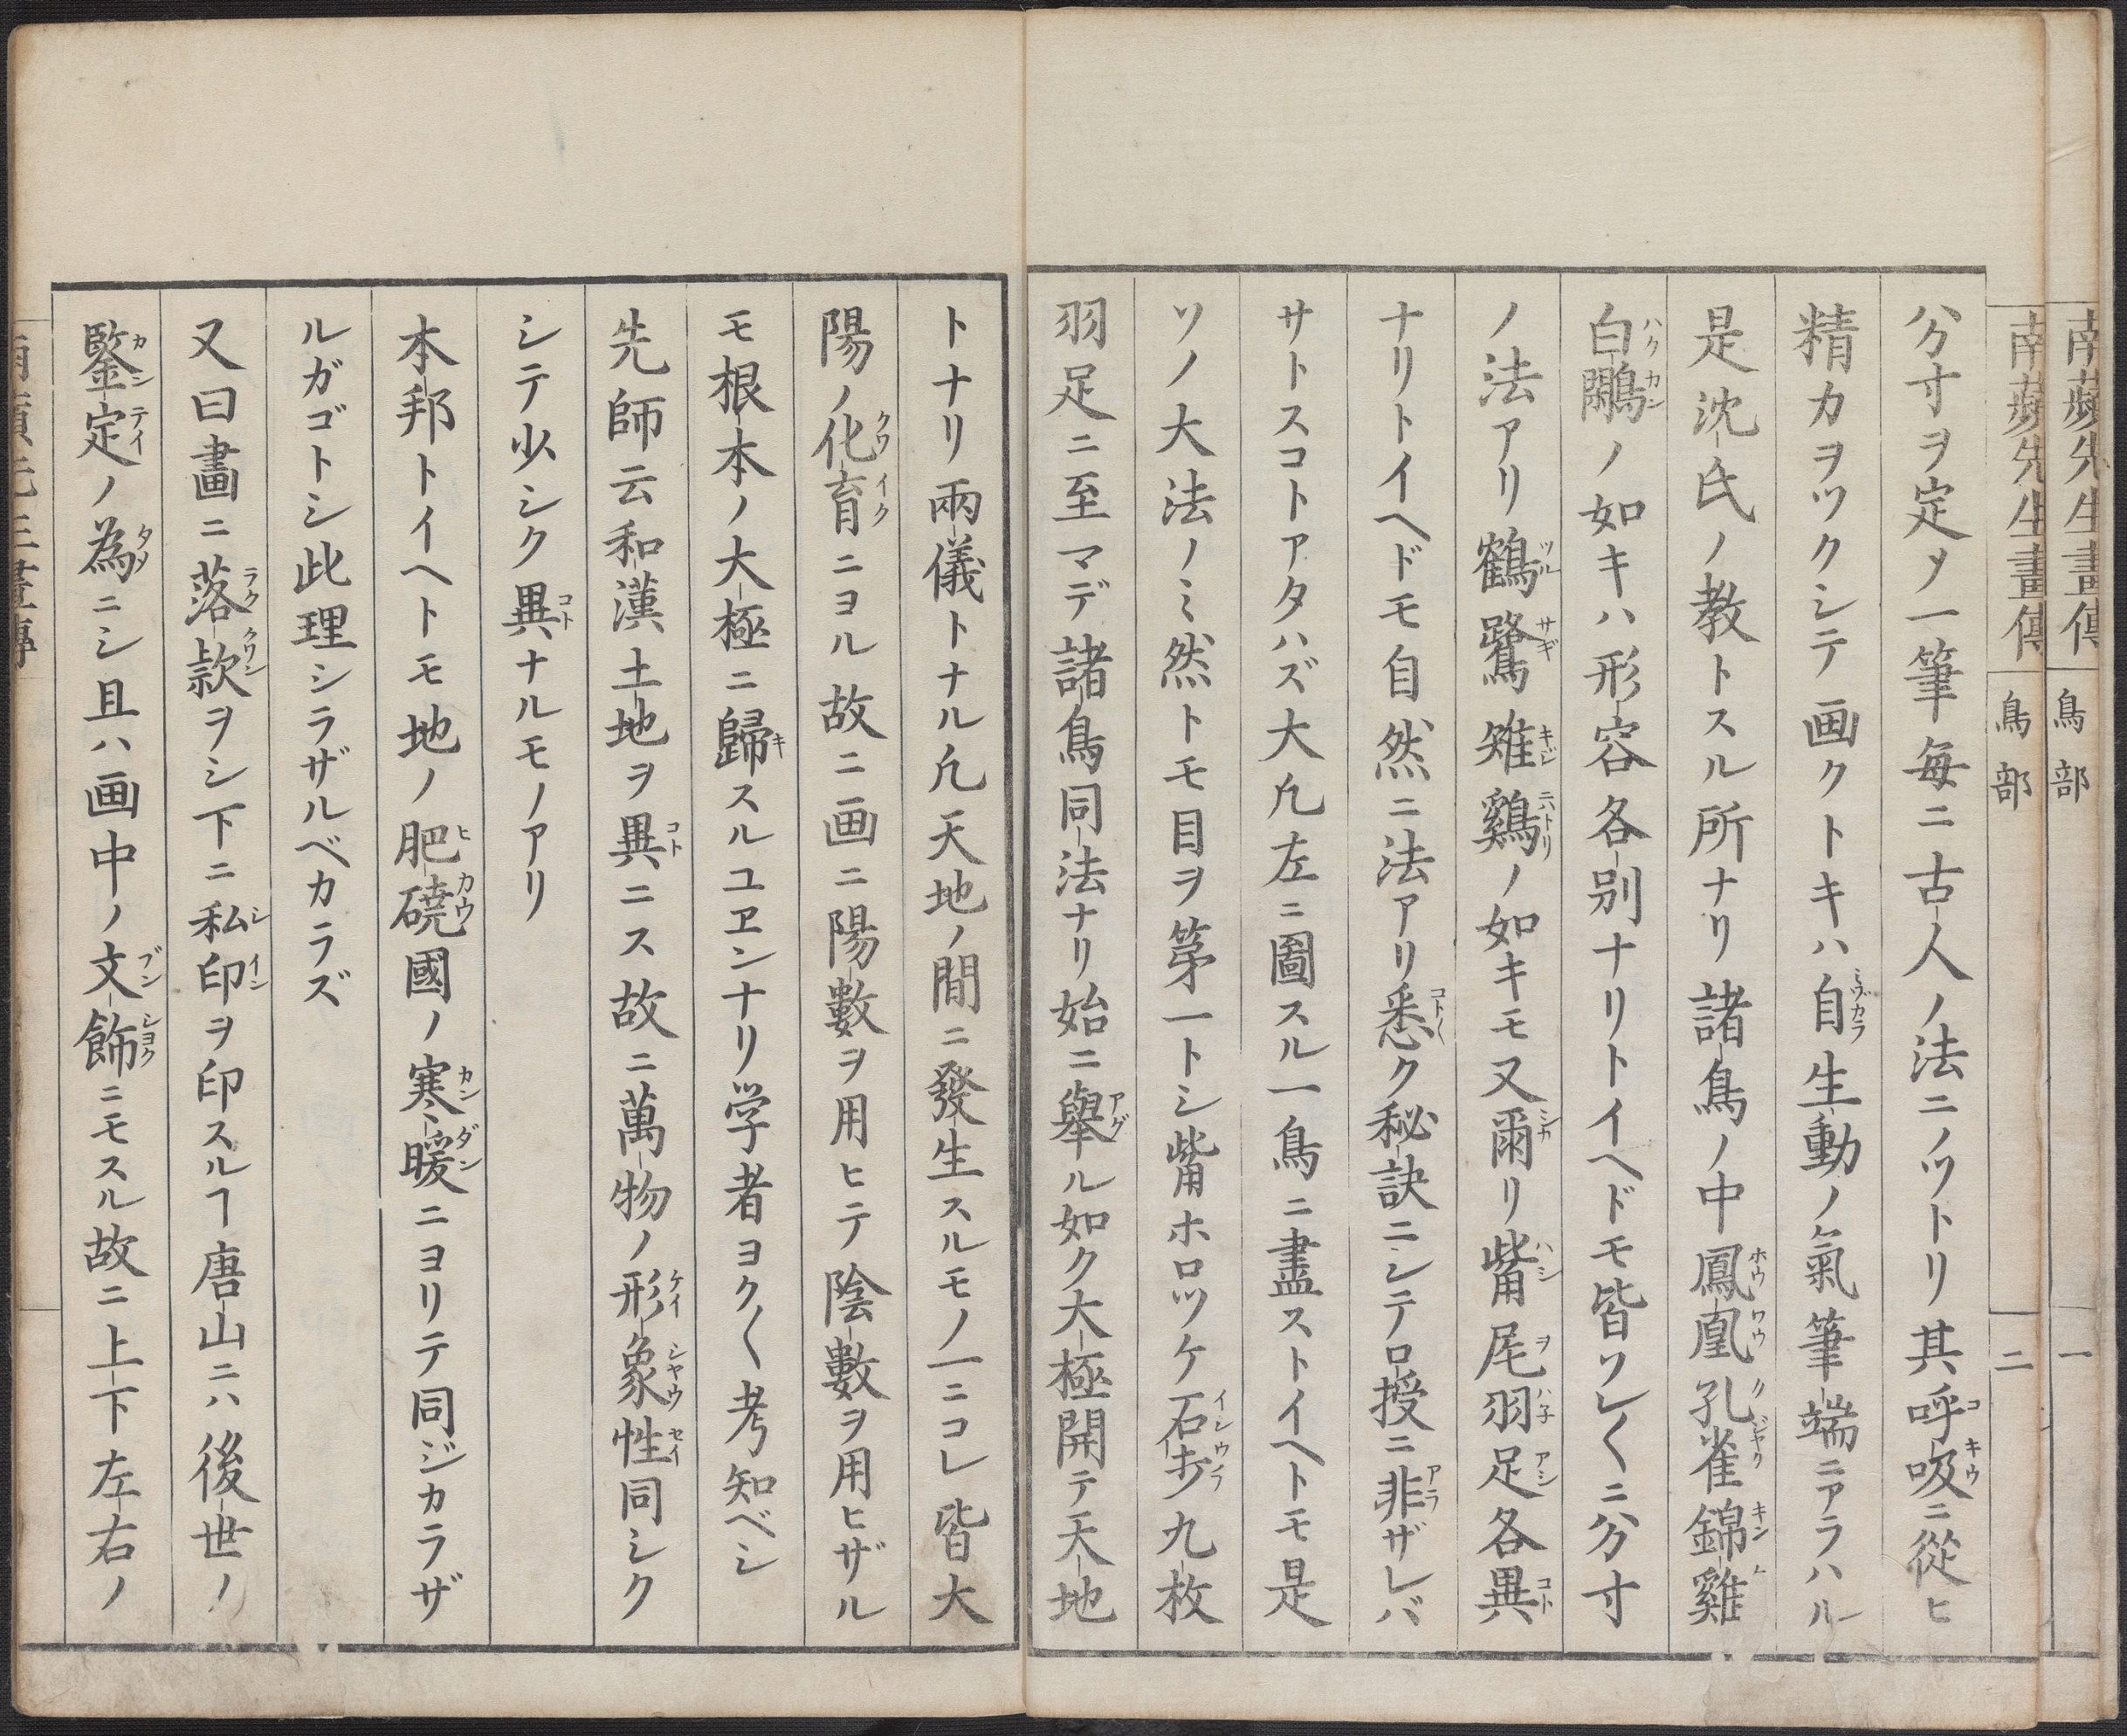 南蘋先生畫傳 鳥部 一
南蘋先生畫傳 鳥部 二
分寸ヲ定メ一筆毎ニ古人ノ法ニノツトリ其呼吸ニ從ヒ
精カヲツクシテ画クトキハ自生動ノ氣筆端ニアラハル
是沈氏ノ教トスル所ナリ諸鳥ノ中鳳凰孔雀錦雞
白鷴ノ如キハ形容各別ナリトイヘドモ皆ソレ〱ニ分寸
ノ法アリ鶴鷺雉鷄ノ如キモ又爾リ觜尾羽足各異
ナリトイヘドモ自然ニ法アリ悉ク秘訣ニシテ口授ニ非ザレバ
サトスコトアタハズ大凢左ニ圖スル一鳥ニ盡ストイヘトモ是
ソノ大法ノミ然トモ目ヲ第一トシ觜ホロツケ石打九枚
羽足ニ至マデ諸鳥同法ナリ始ニ舉ル如ク大極開テ天地
トナリ兩儀トナル凢天地ノ間ニ發生スルモノ一ニコレ皆大
陽ノ化育ニヨル故ニ画ニ陽數ヲ用ヒテ陰數ヲ用ヒザル
モ根本ノ大極ニ歸スルユヱンナリ学者ヨク〱考知ベシ
先師云和漢土地ヲ異ニス故ニ萬物ノ形象性同シク
シテ少シク異ナルモノアリ
本邦トイヘトモ地ノ肥磽國ノ寒暖ニヨリテ同ジカラザ
ルガゴトシ此理シラザルベカラズ
又曰畫ニ落款ヲシ下ニ私印ヲ印スルヿ唐山ニハ後世ノ
鑒定ノ為ニシ且ハ画中ノ文飾ニモスル故ニ上下左右ノ